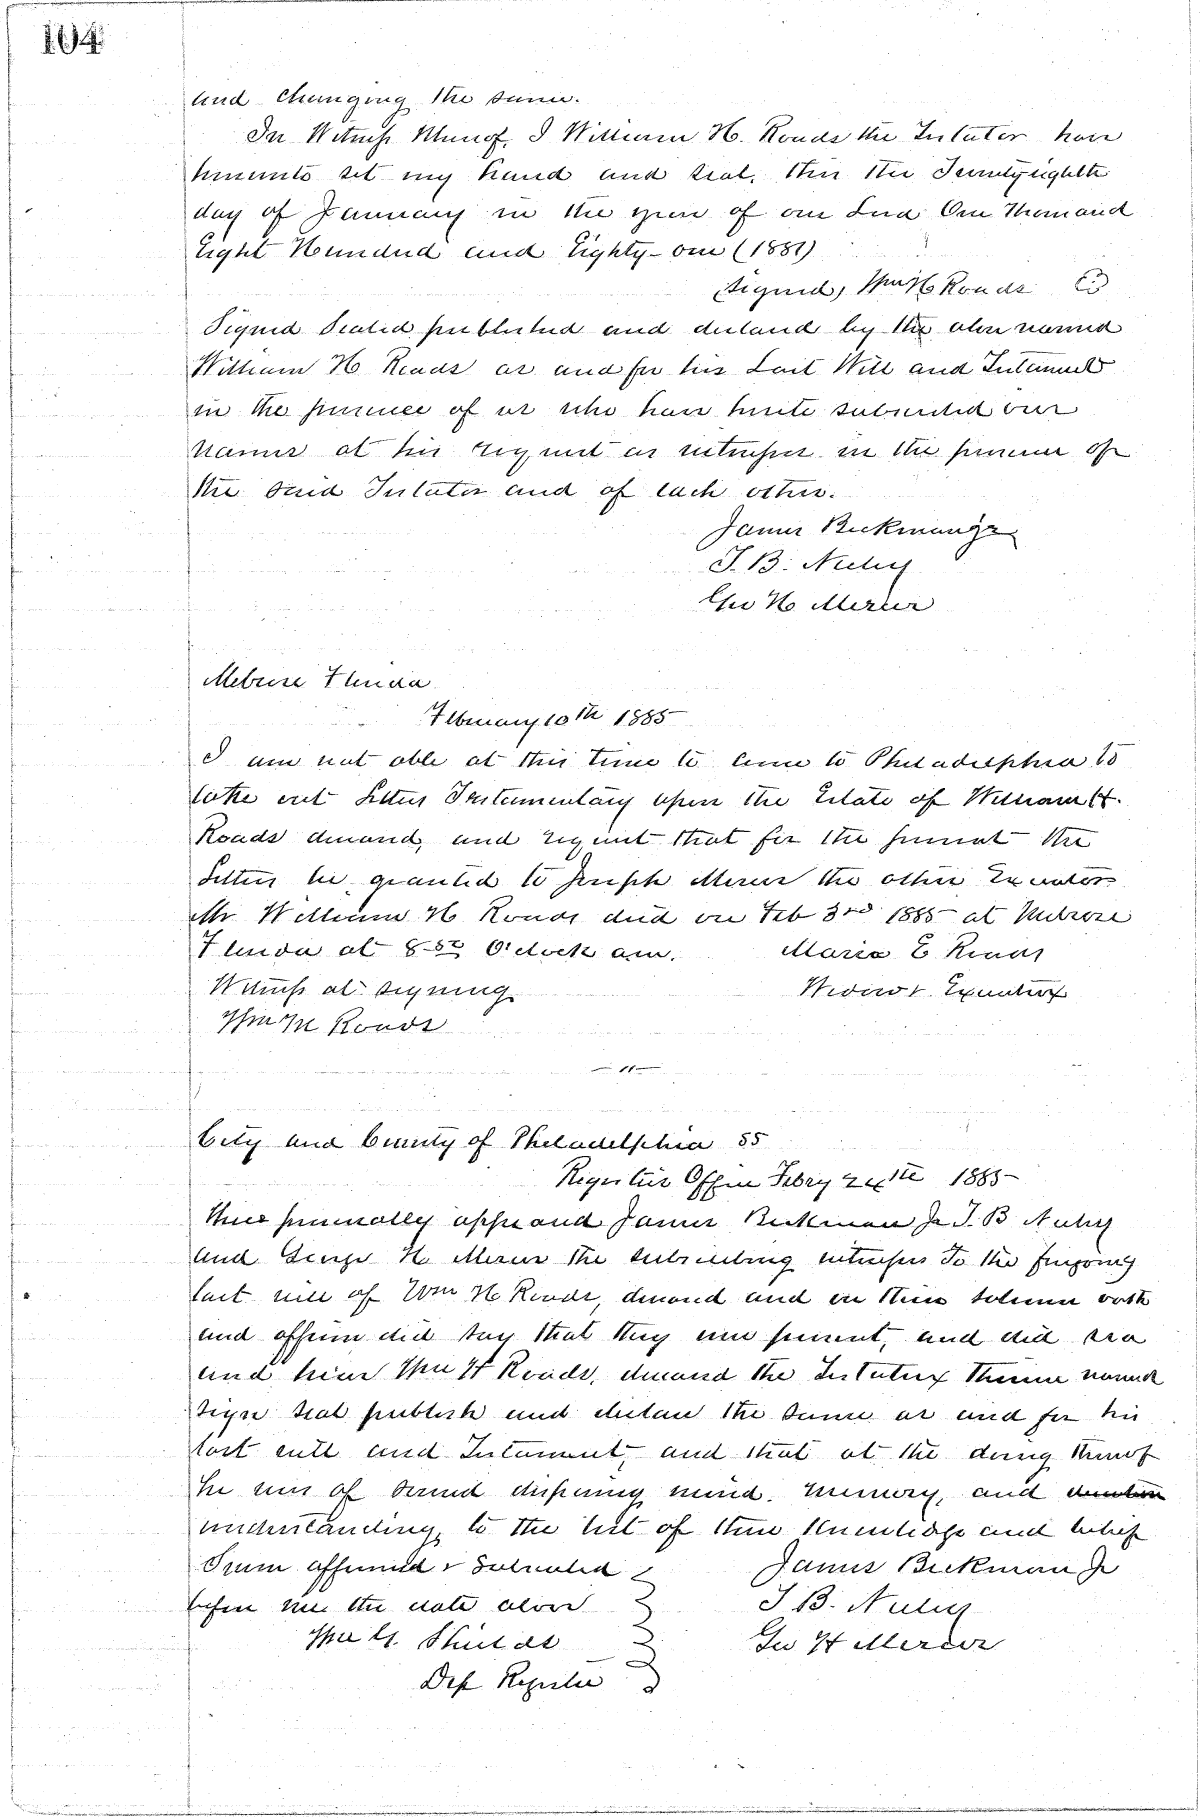 104
and changing the same.
In Witness Whereof, I William H. Roads the Testator have
hereunto set my hand and seal, this the Twentyeighth
day of January in the year of our Lord One Thousand
Eight Hundred and Eighty-one (1881)
Signed, Wm H Roads
Signed Sealed published and declared by the above named
William H Roads as and for his Last Will and Testament
in the presence of us who have hereto subscribed our
names at his request as witnesses in the presence of
the said Testator and of each other.
James Beckman Jr
J. B.
Geo H Mercer
Melrose Florida
February 10th 1885
I am not able at this time to come to Philadelphia to
take out Letters Testamentary upon the Estate of William H.
Roads deceased, and request that for the present the
Letters be granted to Joseph Mercer the other Executor
Mr William H Roads died on Feb 3rd 1885 at Melrose
Florida at 8 O'clock am. Maria E Roads
Witness at signing Widow & Executrix
Wm M Roads
— " —
City and County of Philadelphia SS
Registers Office Febry 24th 1885
Then personally appeared James Beckman Jr J. B
and George H Mercer the subscribing witnesses to the foregoing
last will of Wm H Roads, deceased and on their solemn oath
and affirm did say that they were present, and did see
and hear Wm H Roads, deceased the Testator therein named
sign seal publish and declare the same as and for his
last will and Testament, and that at the doing thereof
he was of sound disposing mind, memory, and
understanding, to the best of their Knowledge and belief
Sworn affirmed & Subscribed James Beckman Jr
before me the date above J. B.
Wm G. Shields Geo H Mercer
Dep Register